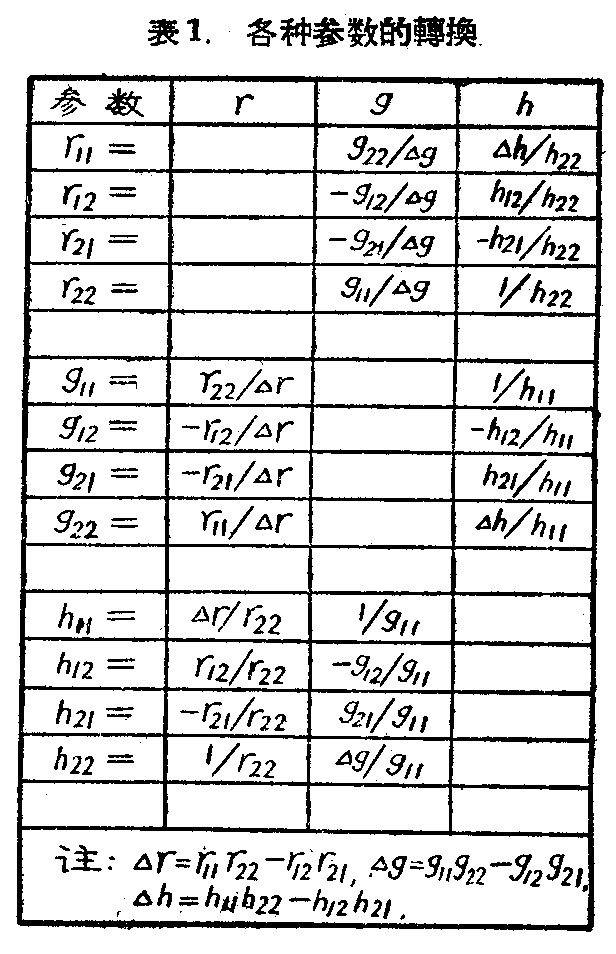 表1. 各种参数的轉換
参数 r g h
r₁₁ = g₂₂/Δg Δh/h₂₂
r₁₂ = -g₁₂/Δg h₁₂/h₂₂
r₂₁ = -g₂₁/Δg -h₂₁/h₂₂
r₂₂ = g₁₁/Δg 1/h₂₂
g₁₁ = r₂₂/Δr 1/h₁₁
g₁₂ = -r₁₂/Δr -h₁₂/h₁₁
g₂₁ = -r₂₁/Δr h₂₁/h₁₁
g₂₂ = r₁₁/Δr Δh/h₁₁
h₁₁ = Δr/r₂₂ 1/g₁₁
h₁₂ = r₁₂/r₂₂ -g₁₂/g₁₁
h₂₁ = -r₂₁/r₂₂ g₂₁/g₁₁
h₂₂ = 1/r₂₂ Δg/g₁₁
注: Δr=r₁₁r₂₂-r₁₂r₂₁, Δg=g₁₁g₂₂-g₁₂g₂₁,
Δh=h₁₁h₂₂-h₁₂h₂₁.